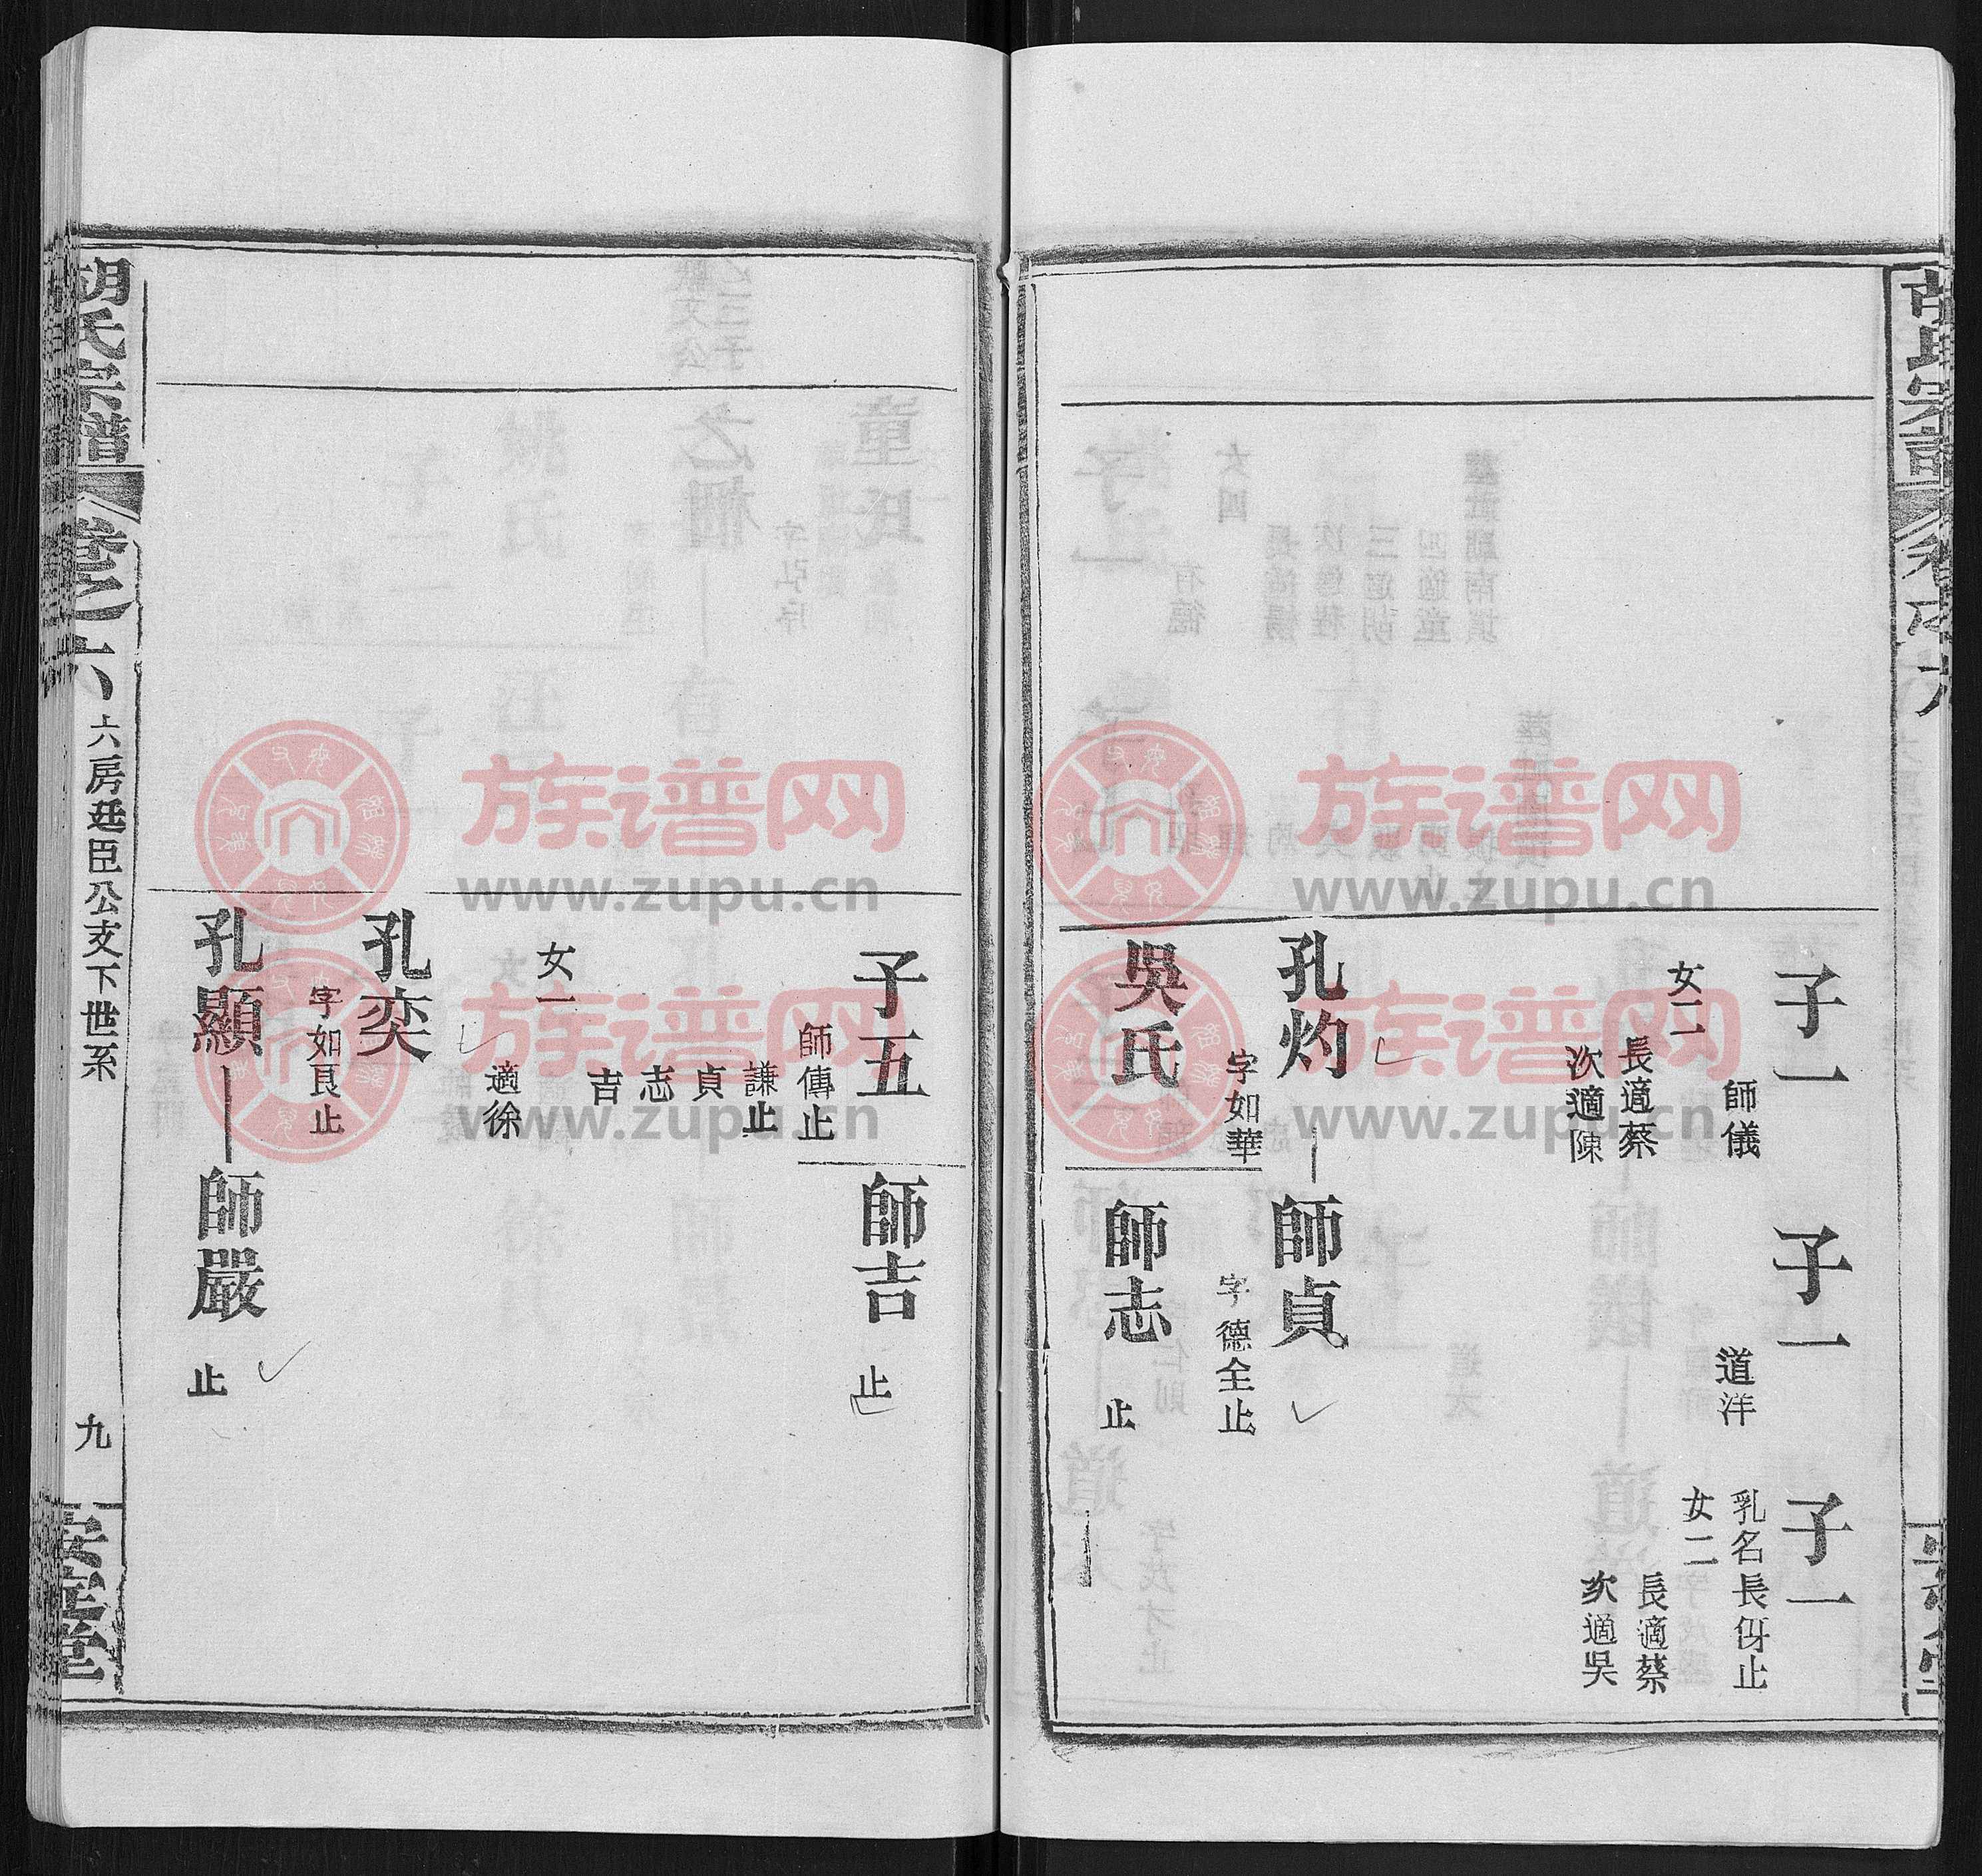 子一
師儀
女二
長適蔡
次適陳
子一
道洋
子一
乳名長伢止
女二
長適蔡
次適吳
孔灼
字如華
吳氏
師貞
字德全止
師志
止
子五
師傳止
謙止
貞
志
吉
女一
適徐
師吉
止
孔奕
字如艮止
孔顯
師嚴
止
胡氏宗譜
卷之六
六房廷臣公支下世系
九
族谱网
www.zupu.cn
族谱网
www.zupu.cn
族谱网
www.zupu.cn
族谱网
www.zupu.cn